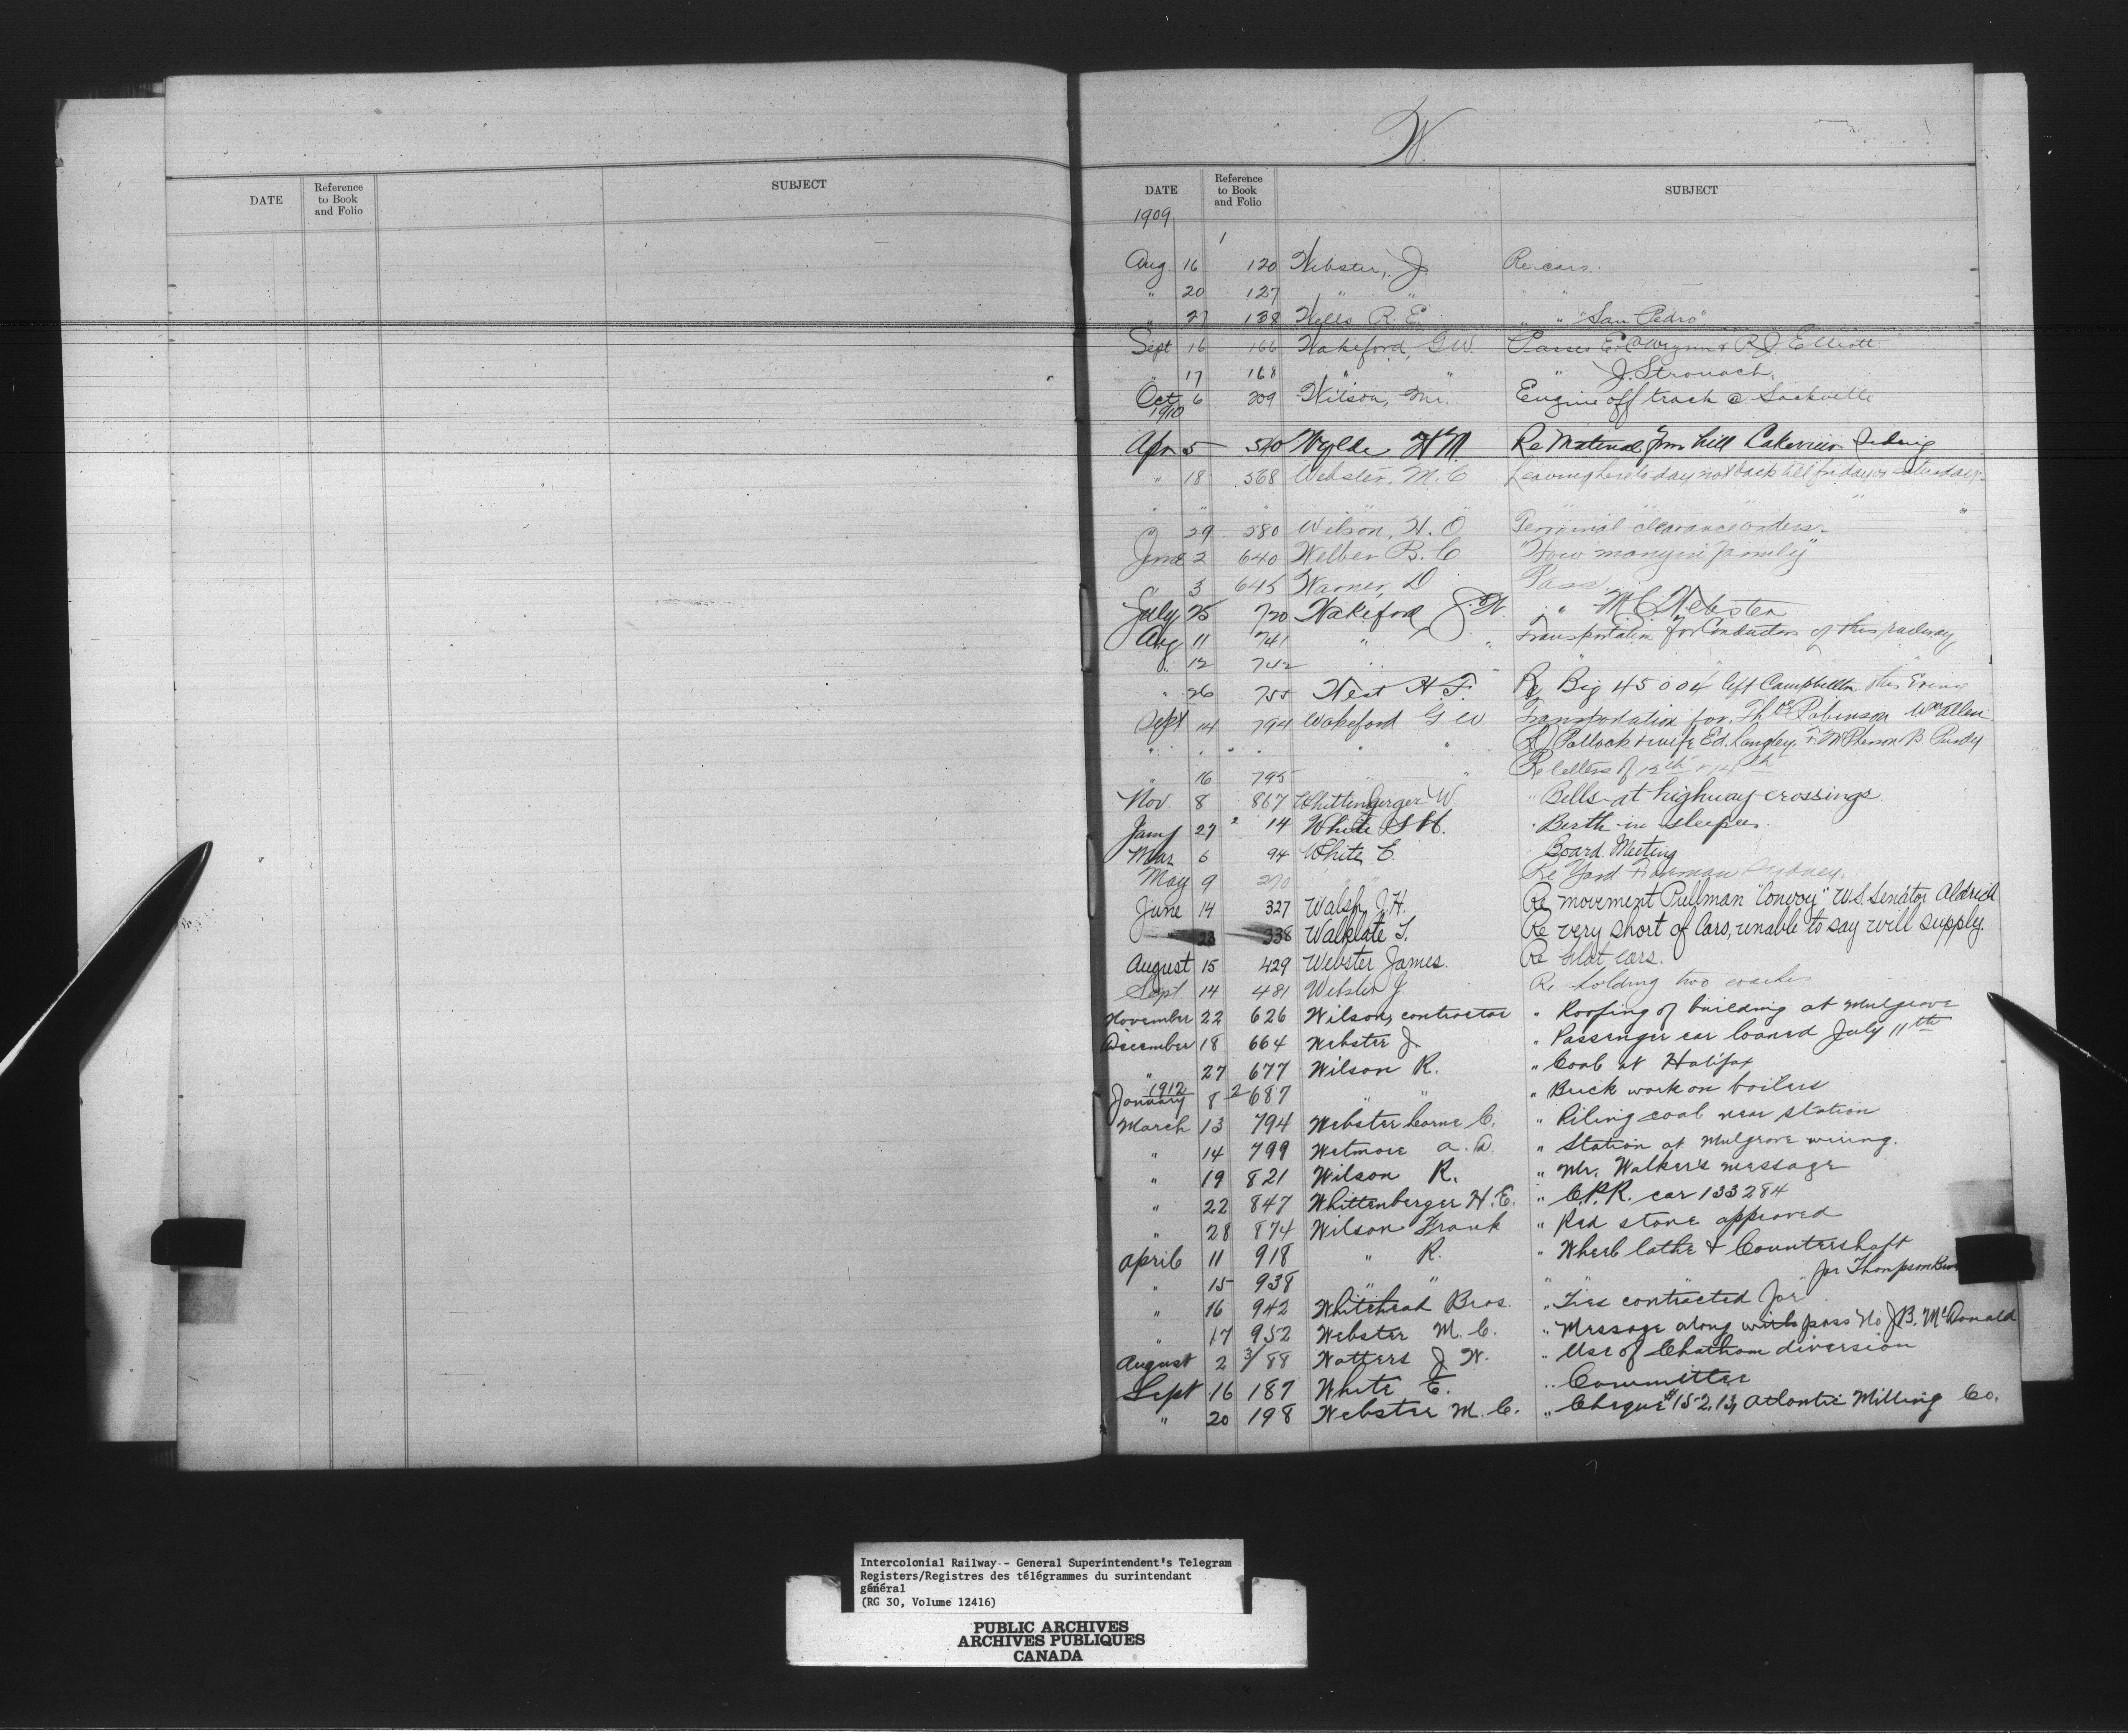 W.
DATE Reference to Book and Folio SUBJECT
DATE Reference to Book and Folio SUBJECT
1909
1
Aug. 16 120 Webster, J. Re cars.
" 20 127 " " " "
" 27 138 Wells R. E. " " "San Pedro"
Sept 16 166 Wakeford, G W. Passes & R J Elliott
" 17 168 " " " J. Stronach.
Oct 6 209 Wilson, Mr. Engine off track @ Sackville
1910
Apr 5 540 Wylde H M. Re Material from hill Lakeview Siding
" 18 568 Webster, M. C Leaving here to day not back till friday or saturday.
" " " " " "
" 29 580 Wilson, H. O Terminal clearance orders.
June 2 640 Welber B. C "How many in family"
" 3 645 Warner, D Pass
July 25 720 Wakeford J. W. " " M. C. Webster
Aug 11 741 " " Transportation for Conductors of this railway
" 12 742 " " "
" 26 755 West H F. Re Big 45004 left Campbellton this Evening
Sept 14 794 Wakeford G W Transportation for Thos Robinson Wm Allen
" " " " " Pollock & wife Ed. Langley, F. McPherson B Purdy
" 16 795 " " Re letters of 12th & 14th
Nov 8 867 Whittengerger W " Bells at highway crossings
Jany 27 2 14 White S H. " Berth in sleeper.
Mar 6 94 White E. Board Meeting
May 9 270 " " Re Yard Foreman Sydney.
June 14 327 Walsh J. H. Re movement Pullman "Convoy" U.S. Senator Aldrich
" 23 338 Walklate T. Re very short of Cars, unable to say will supply.
August 15 429 Webster James. Re flat cars.
Sept 14 481 Webster J Re holding two coaches
November 22 626 Wilson, contractor " Roofing of building at Mulgrave
December 18 664 Webster J. " Passenger car loaned July 11th
" 27 677 Wilson R. " Coal at Halifax
1912
January 8 2 687 " " " Brick work on boilers
March 13 794 Webster Corne C. " Piling coal near station
" 14 799 Wetmore A. D. " Station at Mulgrave wiring.
" 19 821 Wilson R. " Mr. Walker's message
" 22 847 Whittenberger H. E. " C.P.R. car 133284
" 28 874 Wilson Frank " Red stone approved
April 11 918 " R. " Wheel lathe & Countershaft
" 15 938 " " " " " for Thompson Bros
" 16 942 Whitehead Bros. " Ties contracted for
" 17 952 Webster M. C. " Message along with pass No J.B. McDonald
August 2 3/88 Watters J W. " Use of Chatham diversion
Sept 16 187 White E. " Committee
" 20 198 Webster M. C. " Cheque $152.13, Atlantic Milling Co.
Intercolonial Railway - General Superintendent's Telegram
Registers/Registres des télégrammes du surintendant
général
(RG 30, Volume 12416)
PUBLIC ARCHIVES
ARCHIVES PUBLIQUES
CANADA